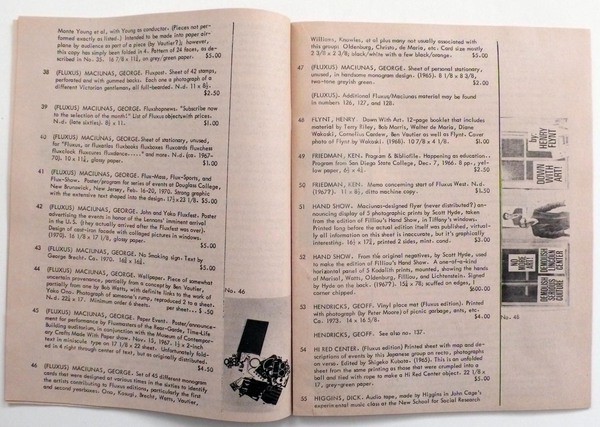 Monte Young et al, with Young as conductor. (Pieces not per-
formed exactly as listed.) Intended to be made into paper air-
plane by audience as part of a piece (by Vautier?); however,
this copy has simply been folded in 4. Pattern of 24 faces, as de-
scribed in No. 35. 16 7/8 x 11¼, on grey/green paper. $5.00
38 (FLUXUS) MACIUNAS, GEORGE. Fluxpost. Sheet of 42 stamps,
perforated and with gummed backs. Each one a photograph of a
different Victorian gentleman, all full-bearded. N.d. 11 x 8½.
$2.50
39 (FLUXUS) MACIUNAS, GEORGE. Fluxshopnews. "Subscribe now
to the selection of the month!" List of Fluxus objects with prices.
N.d. (late sixties). 8½ x 11. $1.00
40 (FLUXUS) MACIUNAS, GEORGE. Sheet of stationary, unused,
for "Fluxus, or fluxartles fluxbooks fluxboxes fluxcards fluxchess
fluxclock fluxcures fluxdence....." and more. N.d. (ca. 1967-
70). 10 x 11¼, glossy paper. $1.00
41 (FLUXUS) MACIUNAS, GEORGE. Flux-Mass, Flux-Sports, and
Flux-Show. Poster/program for series of events at Douglass College,
New Brunswick, New Jersey, Feb. 16-20, 1970. Strong graphic
with the extensive text shaped into the design. 17½ x 23 1/8. $5.00
42 (FLUXUS) MACIUNAS, GEORGE. John and Yoko Fluxfest. Poster
advertising the events in honor of the Lennons' imminent arrival
in the U.S. (they actually arrived after the Fluxfest was over).
Design of cast-iron facade with collaged pictures in windows.
(1970). 16 1/8 x 17 1/8, glossy paper. $5.00
43 (FLUXUS) MACIUNAS, GEORGE. No Smoking sign. Text by
George Brecht. Ca. 1970. 16¼ x 16¼. $5.00
44 (FLUXUS) MACIUNAS, GEORGE. Wallpaper. Piece of somewhat
uncertain provenance, partially from a concept by Ben Vautier,
partially from one by Bob Watts, with definite links to the work of
Yoko Ono. Photograph of someone's rump, reproduced 2 to a sheet.
N.d. 22½ x 17. Minimum order 6 sheets. per sheet... $ .50
45 (FLUXUS) MACIUNAS, GEORGE. Paper Event. Poster/announce-
ment for performance by Fluxmasters of the Rear-Garde, Time-Life
Building auditorium, in conjunction with the Museum of Contempor-
ary Crafts Made With Paper show. Nov. 15, 1967. 1½ x 2-inch
text in miniscule type on 17 1/8 x 22 sheet. Unfortunately fold-
ed in 4 right through center of text, but as originally distributed.
$4.50
46 (FLUXUS) MACIUNAS, GEORGE. Set of 45 different monogram
cards that were designed at various times in the sixties to identify
the artists contributing to Fluxus editions, particularly the first
and second yearboxes. Ono, Kosugi, Brecht, Watts, Vautier,
No. 46
Williams, Knowles, et al plus many not usually associated with
this group: Oldenburg, Christo, de Maria, etc. Card size mostly
2 3/8 x 2 3/8; black/white with a few black/orange. $5.00
47 (FLUXUS) MACIUNAS, GEORGE. Sheet of personal stationery,
unused, in handsome monogram design. (1965). 8 1/8 x 8 3/8,
two-tone greyish green. $2.00
(FLUXUS). Additional Fluxus/Maciunas material may be found
in numbers 126, 127, and 128.
48 FLYNT, HENRY. Down With Art. 12-page booklet that includes
material by Terry Riley, Bob Morris, Walter de Maria, Diane
Wakoski, Cornelius Cardew, Ben Vautier as well as Flynt. Cover
photo of Flynt by Wakoski. (1968). 10 7/8 x 4 1/8. $1.00
49 FRIEDMAN, KEN. Program & Bibliofile. Happening as education..
Program from San Diego State College, Dec. 7, 1966. 8 pp.,
yellow paper, 6½ x 4½. $2.50
50 FRIEDMAN, KEN. Memo concerning start of Fluxus West. N.d.
(1967?). 11 x 8½, ditto machine copy. $1.50
51 HAND SHOW. Maciunas-designed flyer (never distributed?) an-
nouncing display of 3 photographic prints by Scott Hyde, taken
from the edition of Filliou's Hand Show, in Tiffany's windows.
Printed long before the actual edition itself was published, virtual-
ly all information on this sheet is inaccurate, but it's graphically
interesting. 16½ x 17¼, printed 2 sides, mint. cond. $3.00
52 HAND SHOW. From the original negatives, by Scott Hyde, used
to make the edition of Filliou's Hand Show. A one-of-a-kind
horizontal panel of 5 Kodalith prints, mounted, showing the hands
of Marisol, Watts, Oldenburg, Filliou, and Lichtenstein. Signed
by Hyde on the back. (1967?). 15¼ x 78; scuffed on edges, 1
corner chipped. $600.00
53 HENDRICKS, GEOFF. Vinyl place mat (Fluxus edition). Printed
with photograph (by Peter Moore) of picnic garbage, ants, etc.
Ca. 1973. 14 x 16 5/8. $4.00
HENDRICKS, GEOFF. See also no. 137.
54 HI RED CENTER. (Fluxus edition) Printed sheet with map and de-
scriptions of events by this Japanese group on recto, photographs
on verso. Edited by Shigeko Kubota. (1965). This is an unfolded
sheet from the same printing as those that were crumpled into a
ball and tied with rope to make a Hi Red Center object. 22 1/8 x
17, grey-green paper. $5.00
55 HIGGINS, DICK. Audio tape, made by Higgins in John Cage's
experimental music class at the New School for Social Research
HENRY FLYNT
DOWN WITH ART
NO MORE ART
DEMOLISH SERIOUS CULTURE
DEMOLISH LINCOLN CENTER
No. 48